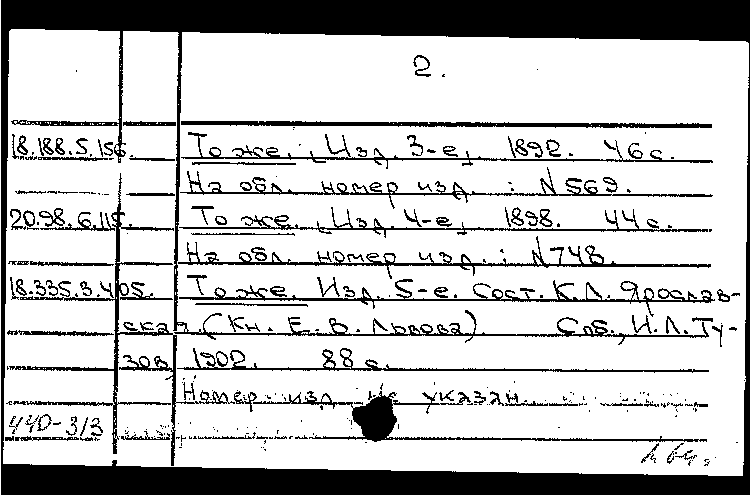 2.
18.188.5.156. То же. [Изд. 3-е]. 1892. 46 с.
На обл. номер изд. : N 569.
20.98.6.115. То же. [Изд. 4-е] 1898. 44 с.
На обл. номер изд. : N 748.
18.335.3.405. То же. Изд. 5-е. Сост. К.Л. Ярослав-
ская (Кн. Е. В. Львова) Спб., И.Л. Ту-
зов, 1902. 88 с.
Номер изд. не указан.
440-313